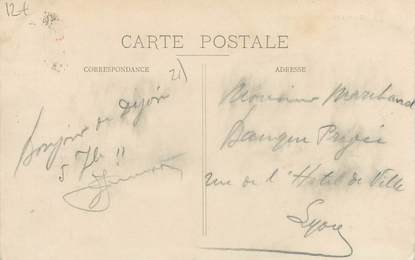 12+
CARTE POSTALE
CORRESPONDANCE
ADRESSE
Bonjour de Dijon
Monsieur Marchand
Banque Privée
rue de l'Hotel de Ville
Lyon